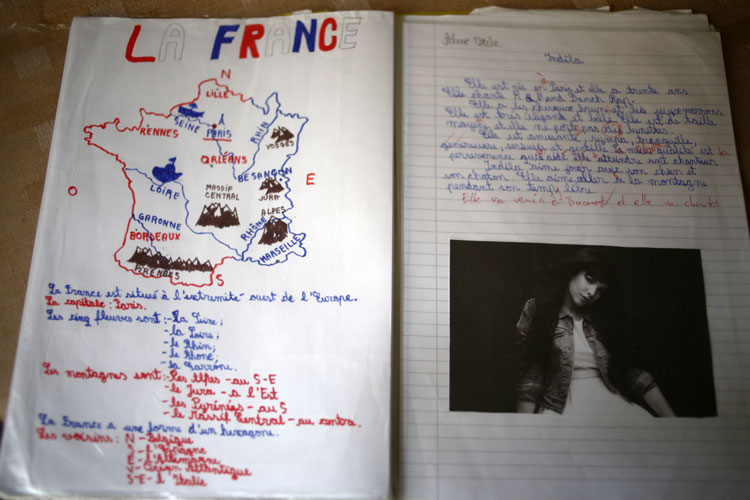 LA FRANCE
N
LILLE
SEINE
RENNES
PARIS
RHIN
VOSGES
ORLÉANS
BESANÇON
E
O
LOIRE
MASSIF
CENTRAL
JURA
ALPES
GARONNE
BORDEAUX
RHÔNE
MARSEILLE
PYRENÉES
S
La France est situé à l'extremité ouest de l'Europe.
La capitale: Paris.
Les cinq fleuves sont: - La Seine;
- la Loire;
- le Rhin;
- le Rhone;
- la Garrone.
Les montagnes sont: - Les Alpes - au S-E
- le Jura - a l'Est
- les Pyrénées - au S
- le Massif Central - au centra.
La France a une forme d'un hexagone.
Les voisins: N - Belgique
l'Espagne
l'Allemagne
Ocean Atlantique
S-E - l'Italie
Indila
Elle est née en Paris et elle a trente ans.
Elle chante R&B and French Rap.
Elle a les cheveux brunes et les yeux marrons.
Elle est très élégante et belle. Elle est de taille
moyenne et elle ne porte pas des lunettes.
Elle est amusante, sympa, tranquille,
généreuse, serieuse et gentille. la
personnes qui
Indila aime jouer avec son chien et
son chaton. Elle aime aller à la montagne
pendant son temps libre.
Elle va venir à et elle va chanter